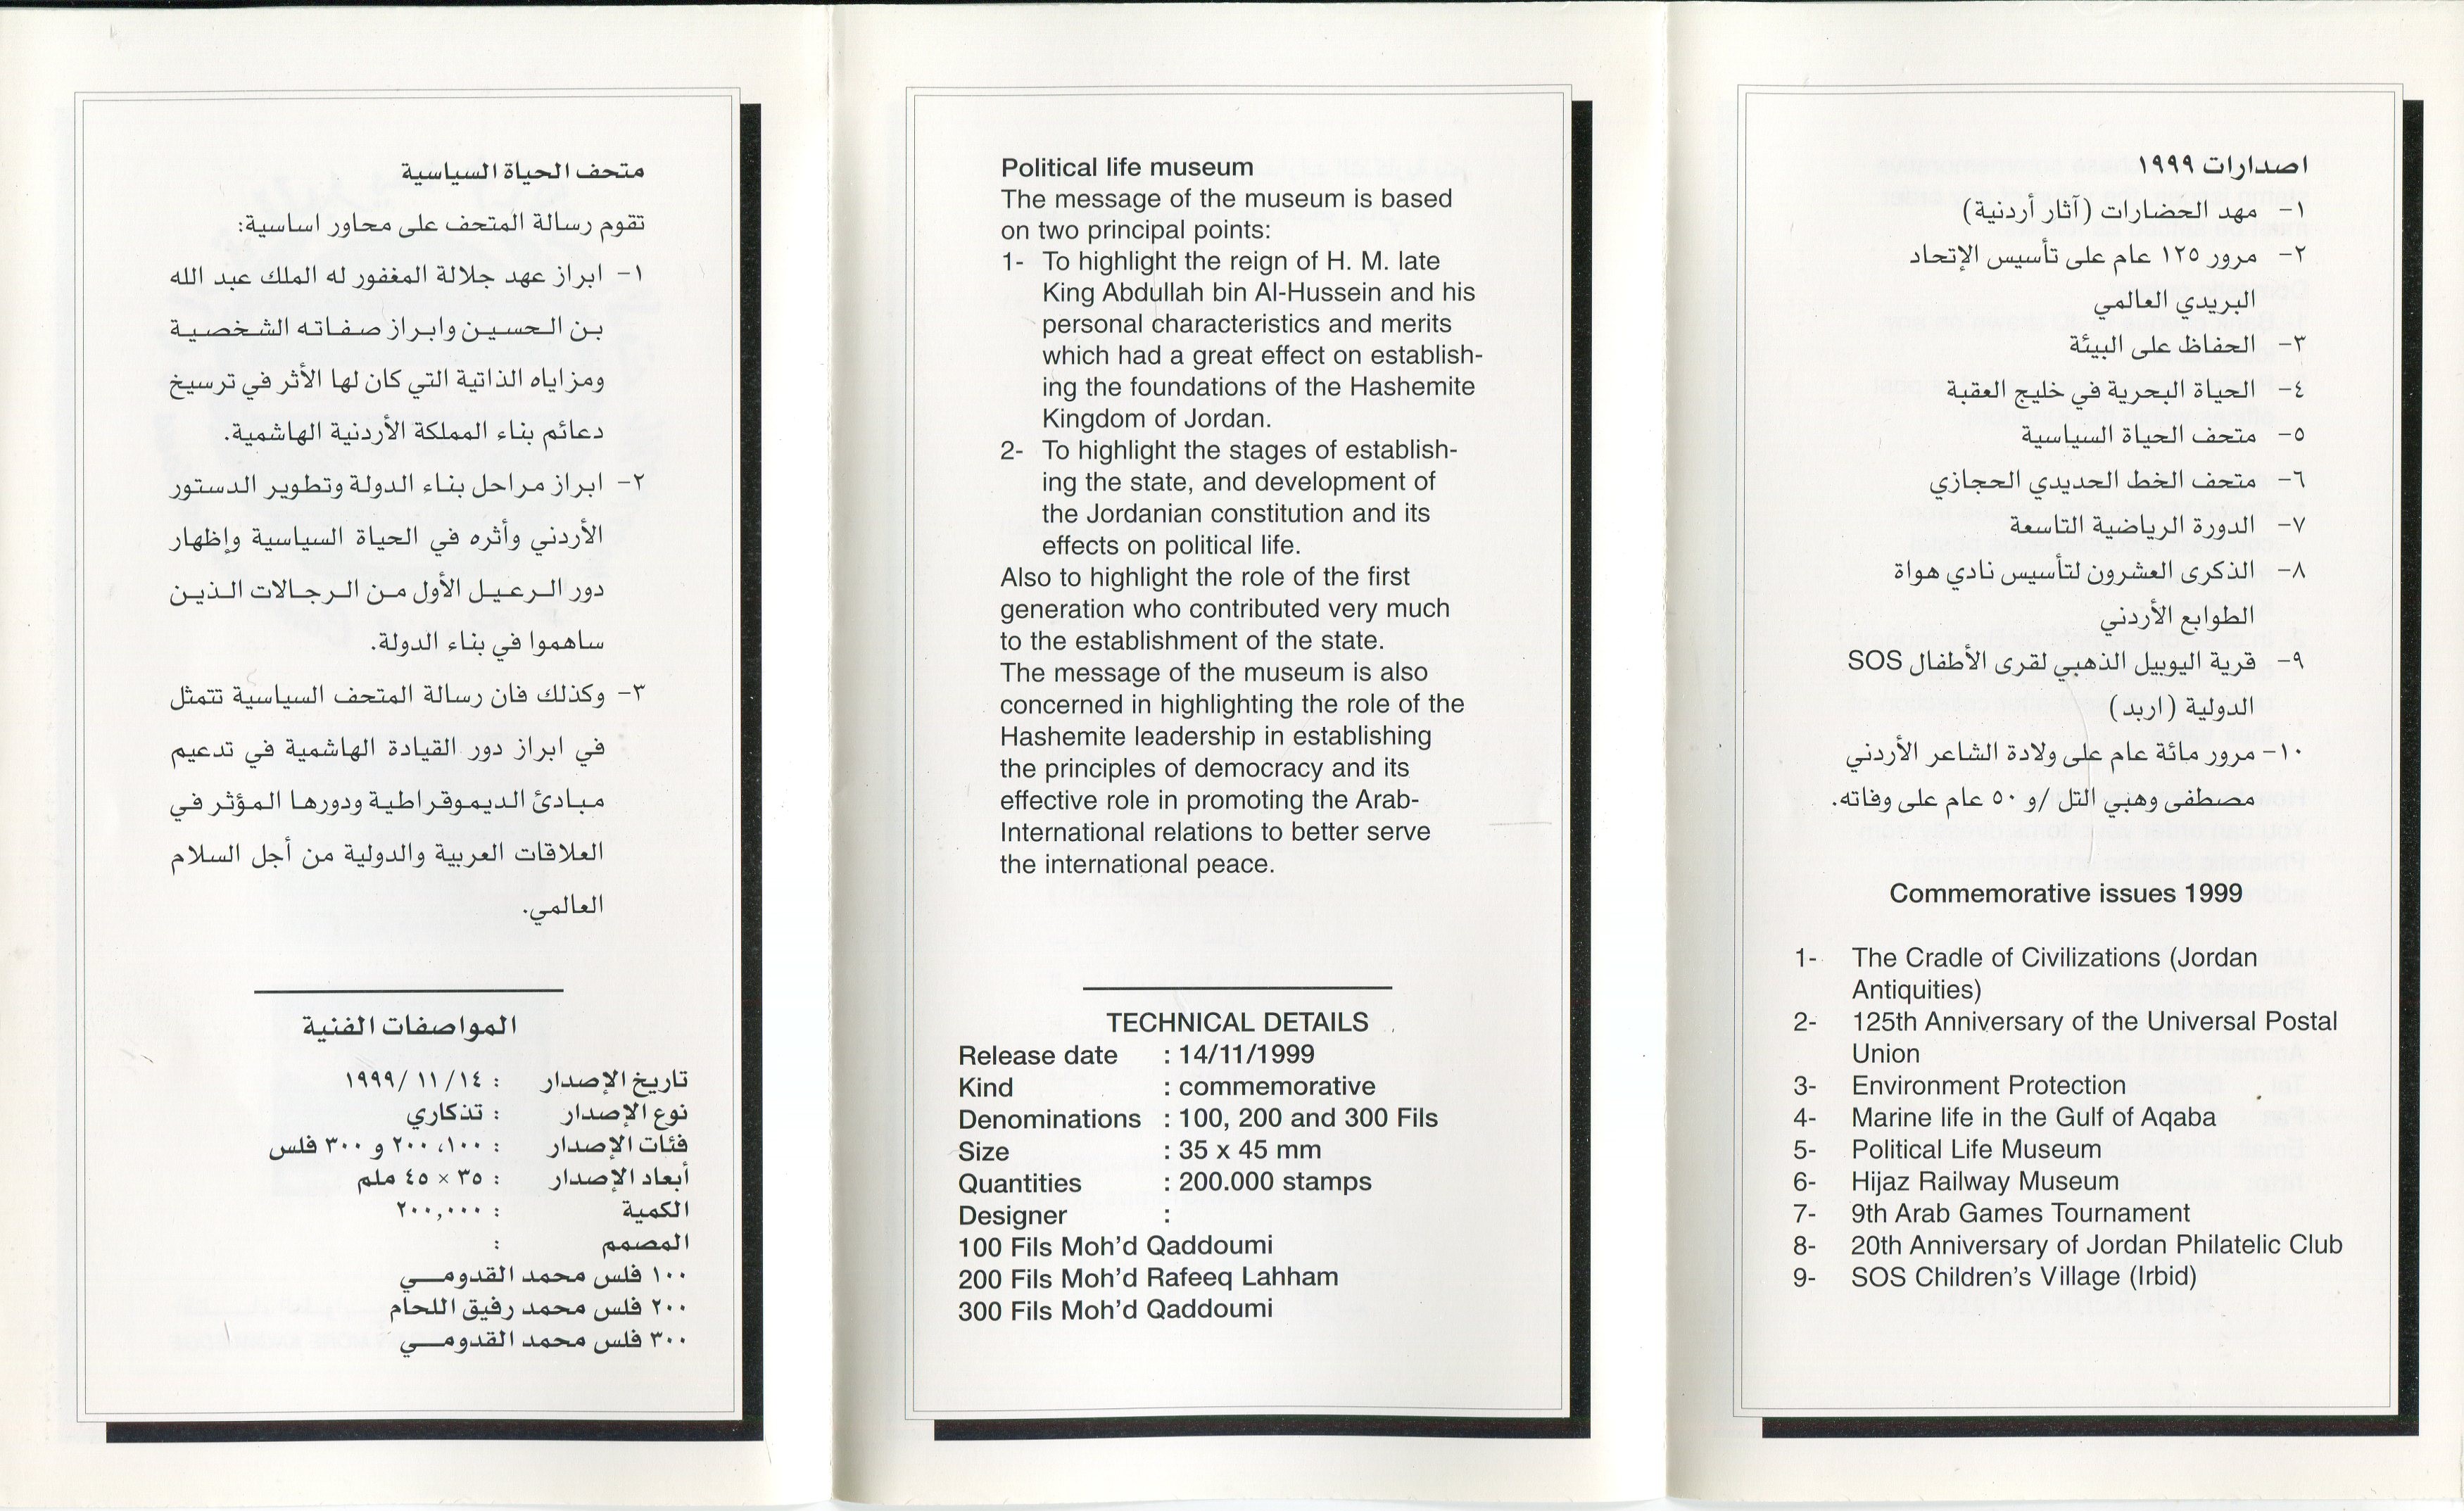 متحف الحياة السياسية
تقوم رسالة المتحف على محاور اساسية:
١- ابراز عهد جلالة المغفور له الملك عبد الله
بن الحسين وابراز صفاته الشخصية
ومزاياه الذاتية التي كان لها الأثر في ترسيخ
دعائم بناء المملكة الأردنية الهاشمية.
٢- ابراز مراحل بناء الدولة وتطوير الدستور
الأردني وأثره في الحياة السياسية وإظهار
دور الرعيل الأول من الرجالات الذين
ساهموا في بناء الدولة.
٣- وكذلك فان رسالة المتحف السياسية تتمثل
في ابراز دور القيادة الهاشمية في تدعيم
مبادئ الديموقراطية ودورها المؤثر في
العلاقات العربية والدولية من أجل السلام
العالمي.
المواصفات الفنية
تاريخ الإصدار : ١٤/ ١١ /١٩٩٩
نوع الإصدار : تذكاري
فئات الإصدار : ١٠٠، ٢٠٠ و ٣٠٠ فلس
أبعاد الإصدار : ٣٥ × ٤٥ ملم
الكمية : ٢٠٠,٠٠٠
المصمم :
١٠٠ فلس محمد القدومي
٢٠٠ فلس محمد رفيق اللحام
٣٠٠ فلس محمد القدومي
Political life museum
The message of the museum is based
on two principal points:
1- To highlight the reign of H. M. late
King Abdullah bin Al-Hussein and his
personal characteristics and merits
which had a great effect on establish-
ing the foundations of the Hashemite
Kingdom of Jordan.
2- To highlight the stages of establish-
ing the state, and development of
the Jordanian constitution and its
effects on political life.
Also to highlight the role of the first
generation who contributed very much
to the establishment of the state.
The message of the museum is also
concerned in highlighting the role of the
Hashemite leadership in establishing
the principles of democracy and its
effective role in promoting the Arab-
International relations to better serve
the international peace.
TECHNICAL DETAILS
Release date : 14/11/1999
Kind : commemorative
Denominations : 100, 200 and 300 Fils
Size : 35 x 45 mm
Quantities : 200.000 stamps
Designer :
100 Fils Moh'd Qaddoumi
200 Fils Moh'd Rafeeq Lahham
300 Fils Moh'd Qaddoumi
اصدارات ١٩٩٩
١- مهد الحضارات (آثار أردنية)
٢- مرور ١٢٥ عام على تأسيس الإتحاد
البريدي العالمي
٣- الحفاظ على البيئة
٤- الحياة البحرية في خليج العقبة
٥- متحف الحياة السياسية
٦- متحف الخط الحديدي الحجازي
٧- الدورة الرياضية التاسعة
٨- الذكرى العشرون لتأسيس نادي هواة
الطوابع الأردني
٩- قرية اليوبيل الذهبي لقرى الأطفال SOS
الدولية (اربد)
١٠- مرور مائة عام على ولادة الشاعر الأردني
مصطفى وهبي التل /و ٥٠ عام على وفاته.
Commemorative issues 1999
1- The Cradle of Civilizations (Jordan
Antiquities)
2- 125th Anniversary of the Universal Postal
Union
3- Environment Protection
4- Marine life in the Gulf of Aqaba
5- Political Life Museum
6- Hijaz Railway Museum
7- 9th Arab Games Tournament
8- 20th Anniversary of Jordan Philatelic Club
9- SOS Children's Village (Irbid)